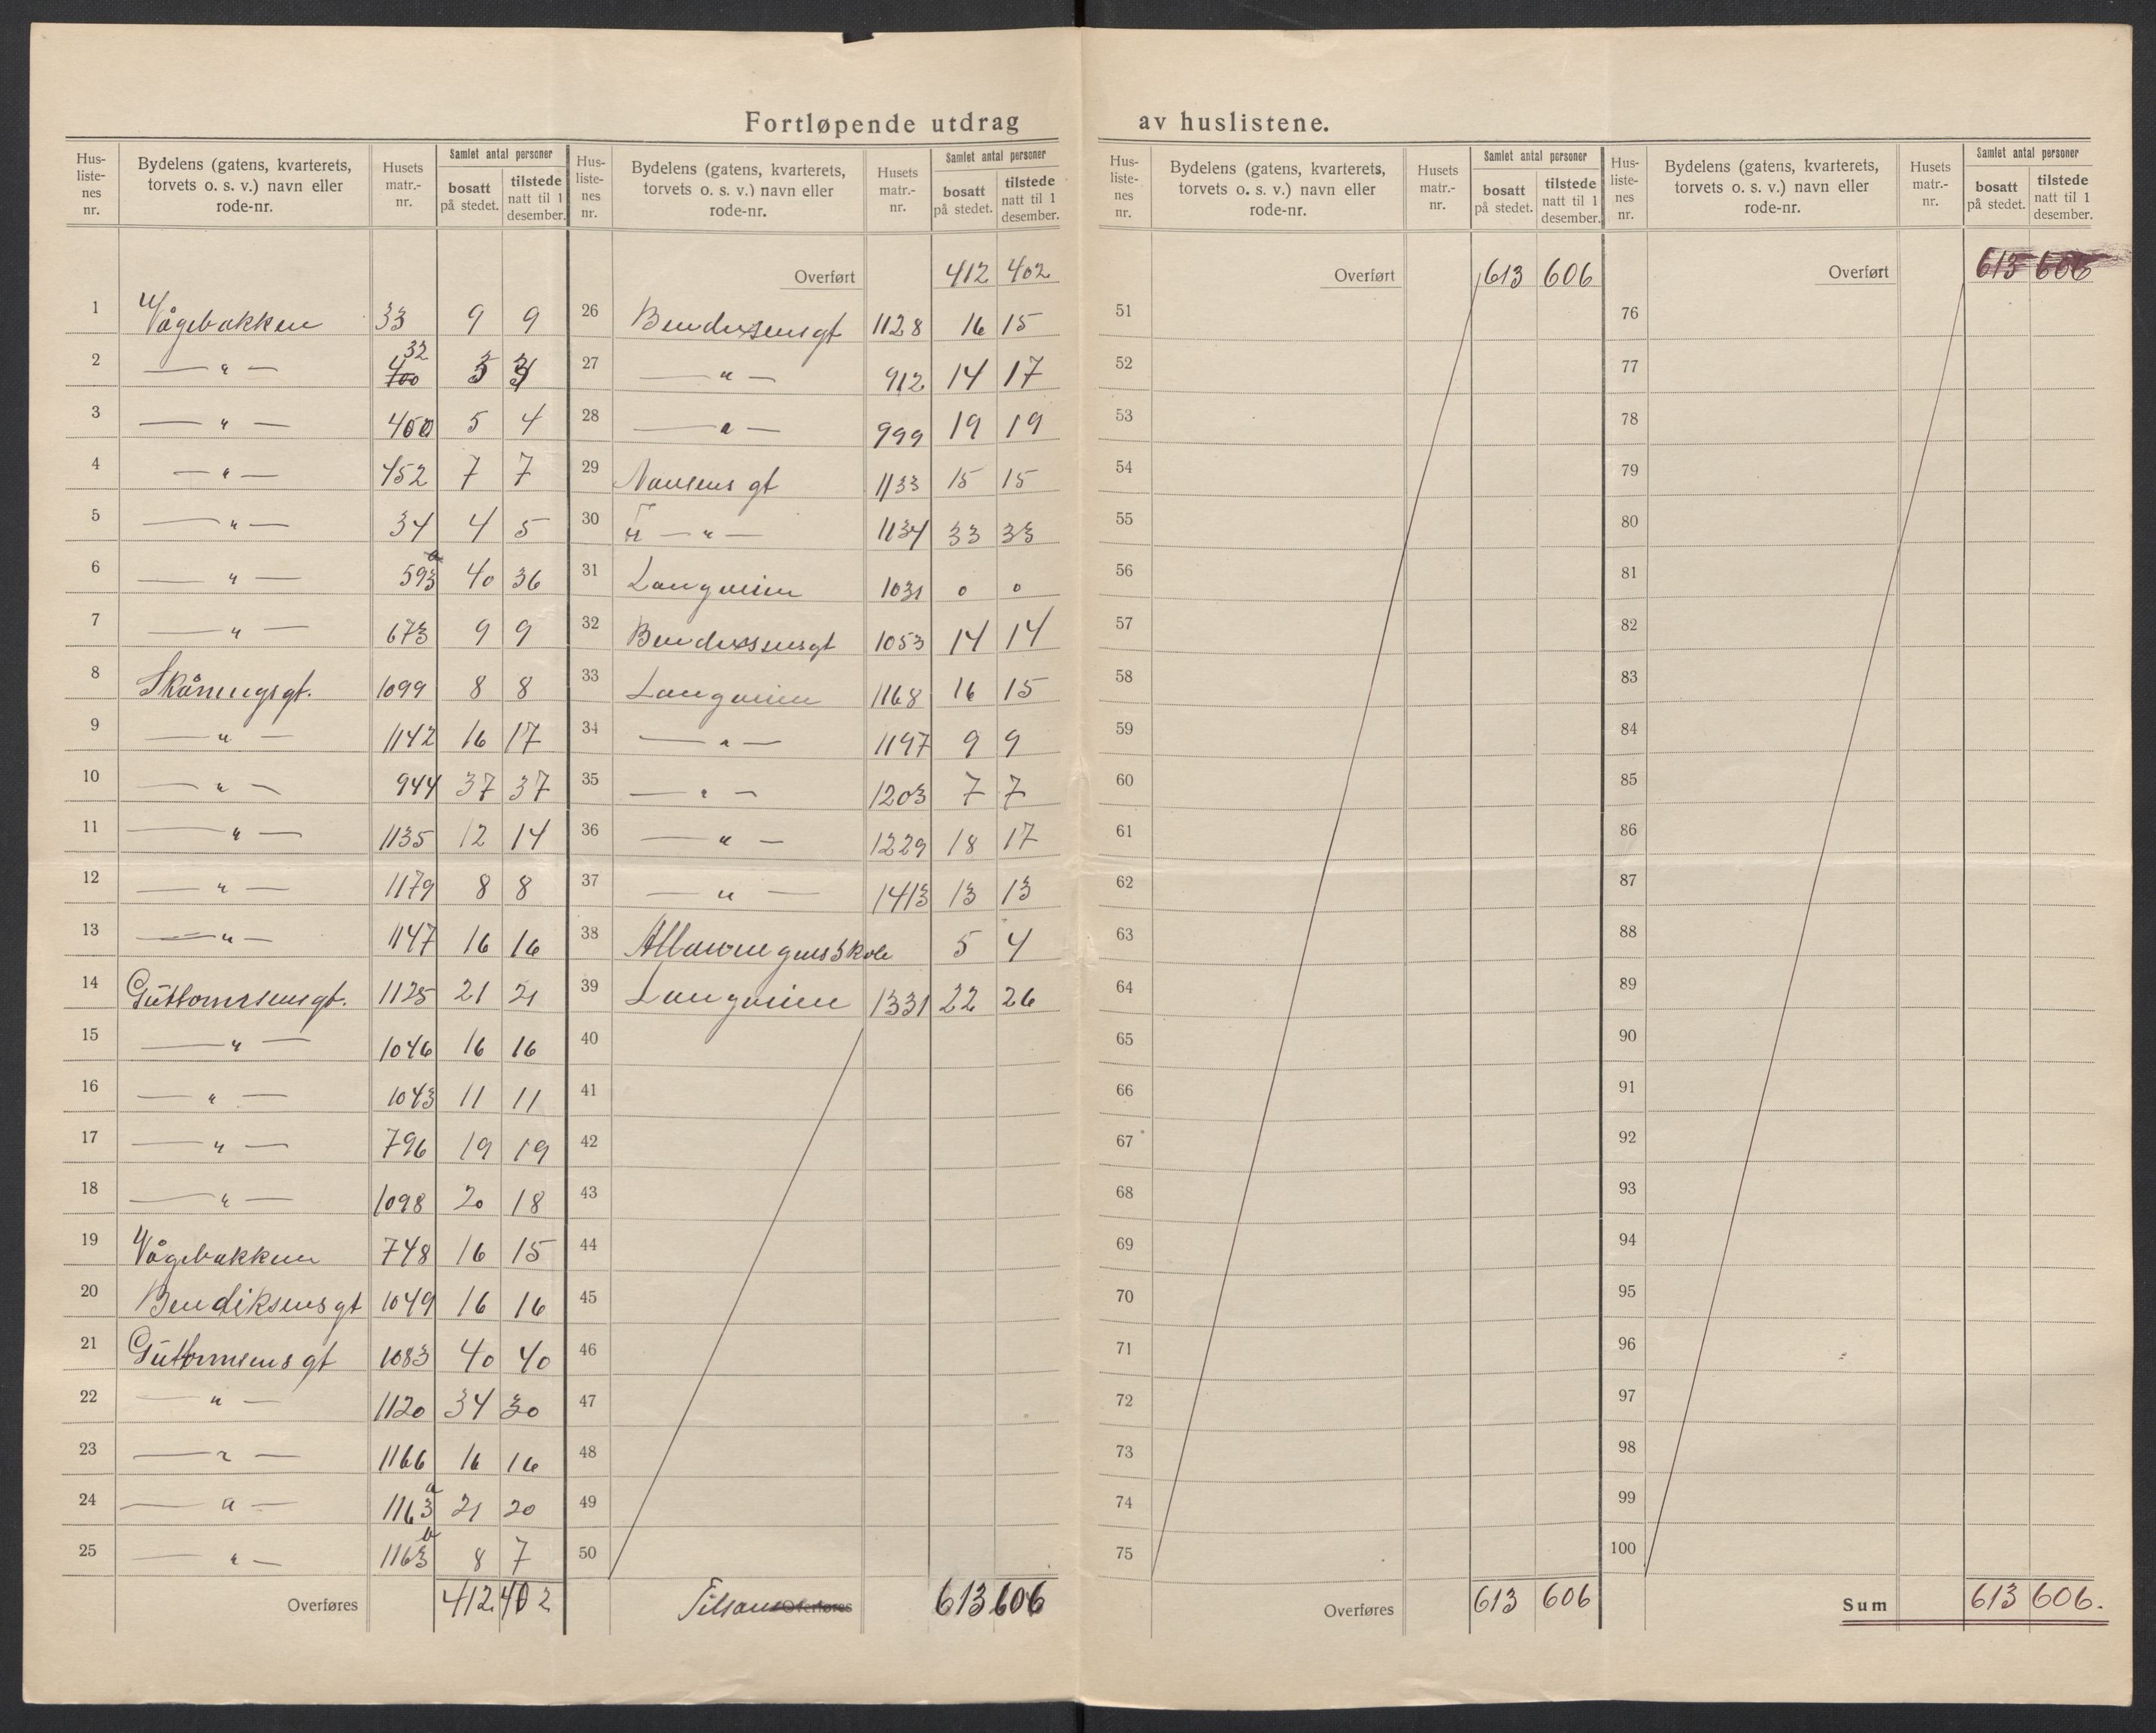 Fortløpende utdrag av huslistene.
Hus-listenes nr. | Bydelens (gatens, kvarterets, torvets o. s. v.) navn eller rode-nr. | Husets matr.-nr. | Samlet antal personer bosatt på stedet. | tilstede natt til 1 desember.
1 Vågebakken 33 9 9
2 — " — 32 400 3 3
3 — " — 400 5 4
4 — " — 452 7 7
5 — " — 34 4 5
6 — " — 593 a 40 36
7 — " — 673 9 9
8 Skåningsgt. 1099 8 8
9 — " — 1142 16 17
10 — " — 944 37 37
11 — " — 1135 12 14
12 — " — 1179 8 8
13 — " — 1147 16 16
14 Guttormsensgt. 1125 21 21
15 — " — 1046 16 16
16 — " — 1043 11 11
17 — " — 796 19 19
18 — " — 1098 20 18
19 Vågebakken 748 16 15
20 Bendiksensgt 1049 16 16
21 Guttormsensgt 1083 40 40
22 — " — 1120 34 30
23 — " — 1166 16 16
24 — " — 1163 a 21 20
25 — " — 1163 b 8 7
Overføres 412 402
Hus-listenes nr. | Bydelens (gatens, kvarterets, torvets o. s. v.) navn eller rode-nr. | Husets matr.-nr. | Samlet antal personer bosatt på stedet. | tilstede natt til 1 desember.
Overført 412 402
26 Bendixsensgt 1128 16 15
27 — " — 912 14 17
28 — " — 999 19 19
29 Nansens gt 1133 15 15
30 " — " — 1134 33 33
31 Langveien 1031 0 0
32 Bendixsensgt 1053 14 14
33 Langveien 1168 16 15
34 — " — 1197 9 9
35 — " — 1203 7 7
36 — " — 1229 18 17
37 — " — 1413 13 13
38 Allmenngens skole 5 4
39 Langveien 1331 22 26
40
41
42
43
44
45
46
47
48
49
50
Tilsam Overføres 613 606
Hus-listenes nr. | Bydelens (gatens, kvarterets, torvets o. s. v.) navn eller rode-nr. | Husets matr.-nr. | Samlet antal personer bosatt på stedet. | tilstede natt til 1 desember.
Overført 613 606
51
52
53
54
55
56
57
58
59
60
61
62
63
64
65
66
67
68
69
70
71
72
73
74
75
Overføres 613 606
Hus-listenes nr. | Bydelens (gatens, kvarterets, torvets o. s. v.) navn eller rode-nr. | Husets matr.-nr. | Samlet antal personer bosatt på stedet. | tilstede natt til 1 desember.
Overført 613 606
76
77
78
79
80
81
82
83
84
85
86
87
88
89
90
91
92
93
94
95
96
97
98
99
100
Sum 613 606.